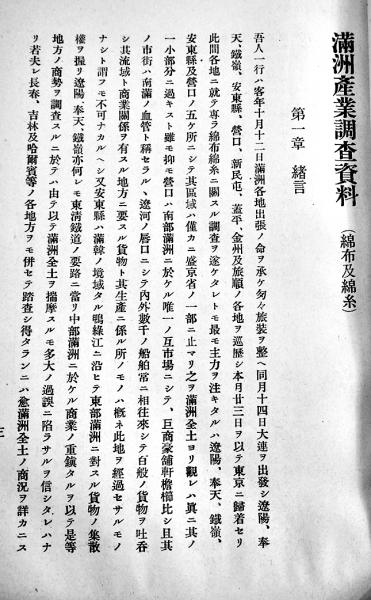 滿洲產業調査資料 (綿布及綿糸)
第一章 緖言
吾人一行ハ客年十月十二日滿洲各地出張ノ命ヲ承ケ匆々旅裝ヲ整ヘ同月十四日大連ヲ出發シ遼陽、奉
天、鐵嶺、安東縣、營口、新民屯、蓋平、金州及旅順ノ各地ヲ巡歷シ本月廿三日ヲ以テ東京ニ歸着セリ
此間各地ニ就テ專ラ綿布綿糸ニ關スル調査ヲ遂ケタレトモ最モ主力ヲ注キタルハ遼陽、奉天、鐵嶺、
安東縣及營口ノ五ケ所ニシテ其區域ハ僅カニ盛京省ノ一部ニ止マリ之ヲ滿洲全土ヨリ觀レハ眞ニ其ノ
一小部分ニ過キスト雖モ抑モ營口ハ南部滿洲ニ於ケル唯一ノ互市場ニシテ、巨商豪舖軒檐櫛比シ且其
ノ市街ハ南滿ノ血管ト稱セラル、遼河ノ唇口ニシテ內外數千ノ船舶常ニ相往來シテ百般ノ貨物ヲ吐呑
シ其流域ト商業關係ヲ有スル地方ニ要スル貨物ト其生產ニ係ル所ノモノハ槪ネ此地ヲ經過セサルモノ
ナシト謂フモ不可ナカルヘシ又安東縣ハ滿韓ノ境域タル鴨綠江ニ沿ヒテ東部滿洲ニ對スル貨物ノ集散
權ヲ握リ遼陽、奉天、鐵嶺亦何レモ東淸鐵道ノ要路ニ當リ中部滿洲ニ於ケル商業ノ重鎭タルヲ以テ是等
地方ノ商勢ヲ調査スルニ於テハ由テ以テ滿洲全土ヲ揣摩スルモ多大ノ過誤ニ陷ラサルヲ信シタレハナ
リ若夫レ長春、吉林及哈爾賓等ノ各地方ヲモ併セテ踏査シ得タランニハ愈滿洲全土ノ商況ヲ詳カニス
三